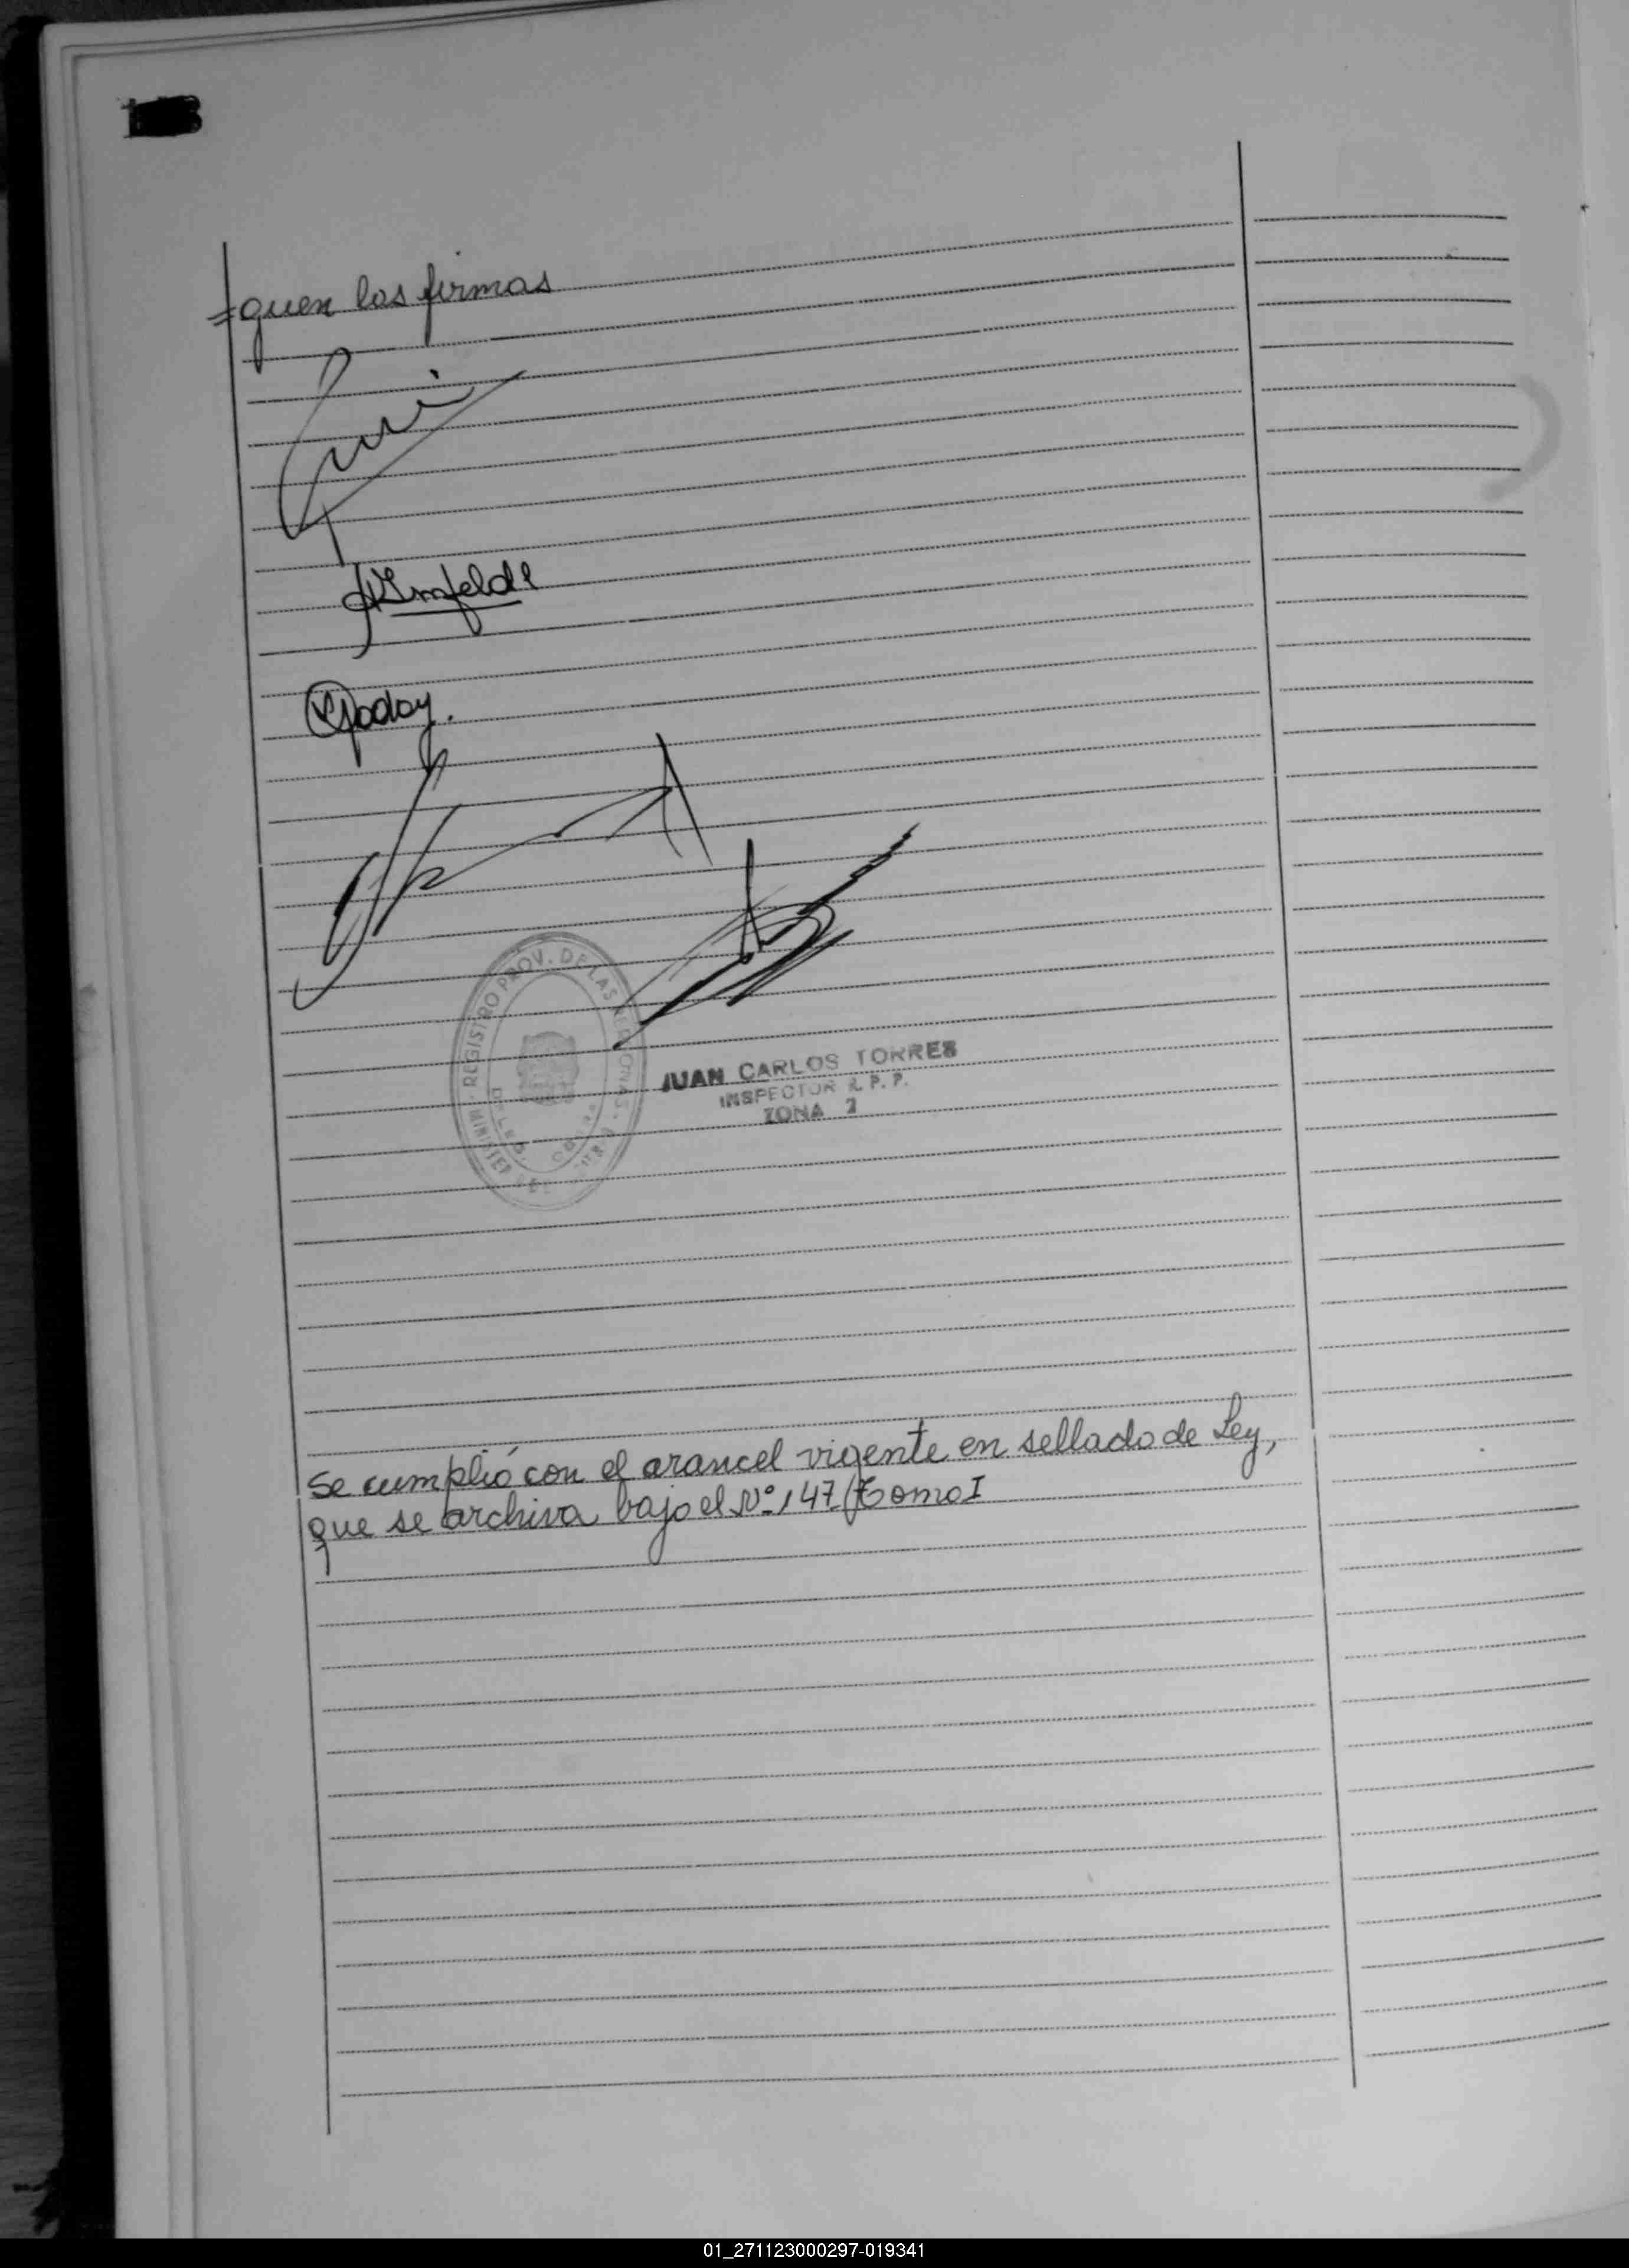 =guen las firmas
Godoy.
REGISTRO PROV. DE LAS PERSONAS
JUAN CARLOS TORRES
INSPECTOR R. P. P.
ZONA 2
Se cumplió con el arancel vigente en sellado de Ley,
que se archiva bajo el Nº 147/Tomo I
01_271123000297-019341